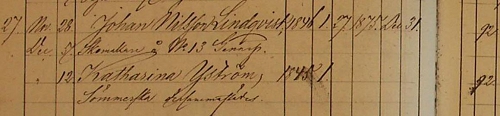 27 Nov 28. Johan Nilsson Lindqvist, 1846 1 27/1875. Dec 31. 92
Dec 8 Skomakare å No 13 Genarp.
" 12. Katharina Yström, 1845 1 92.
Sömmerska